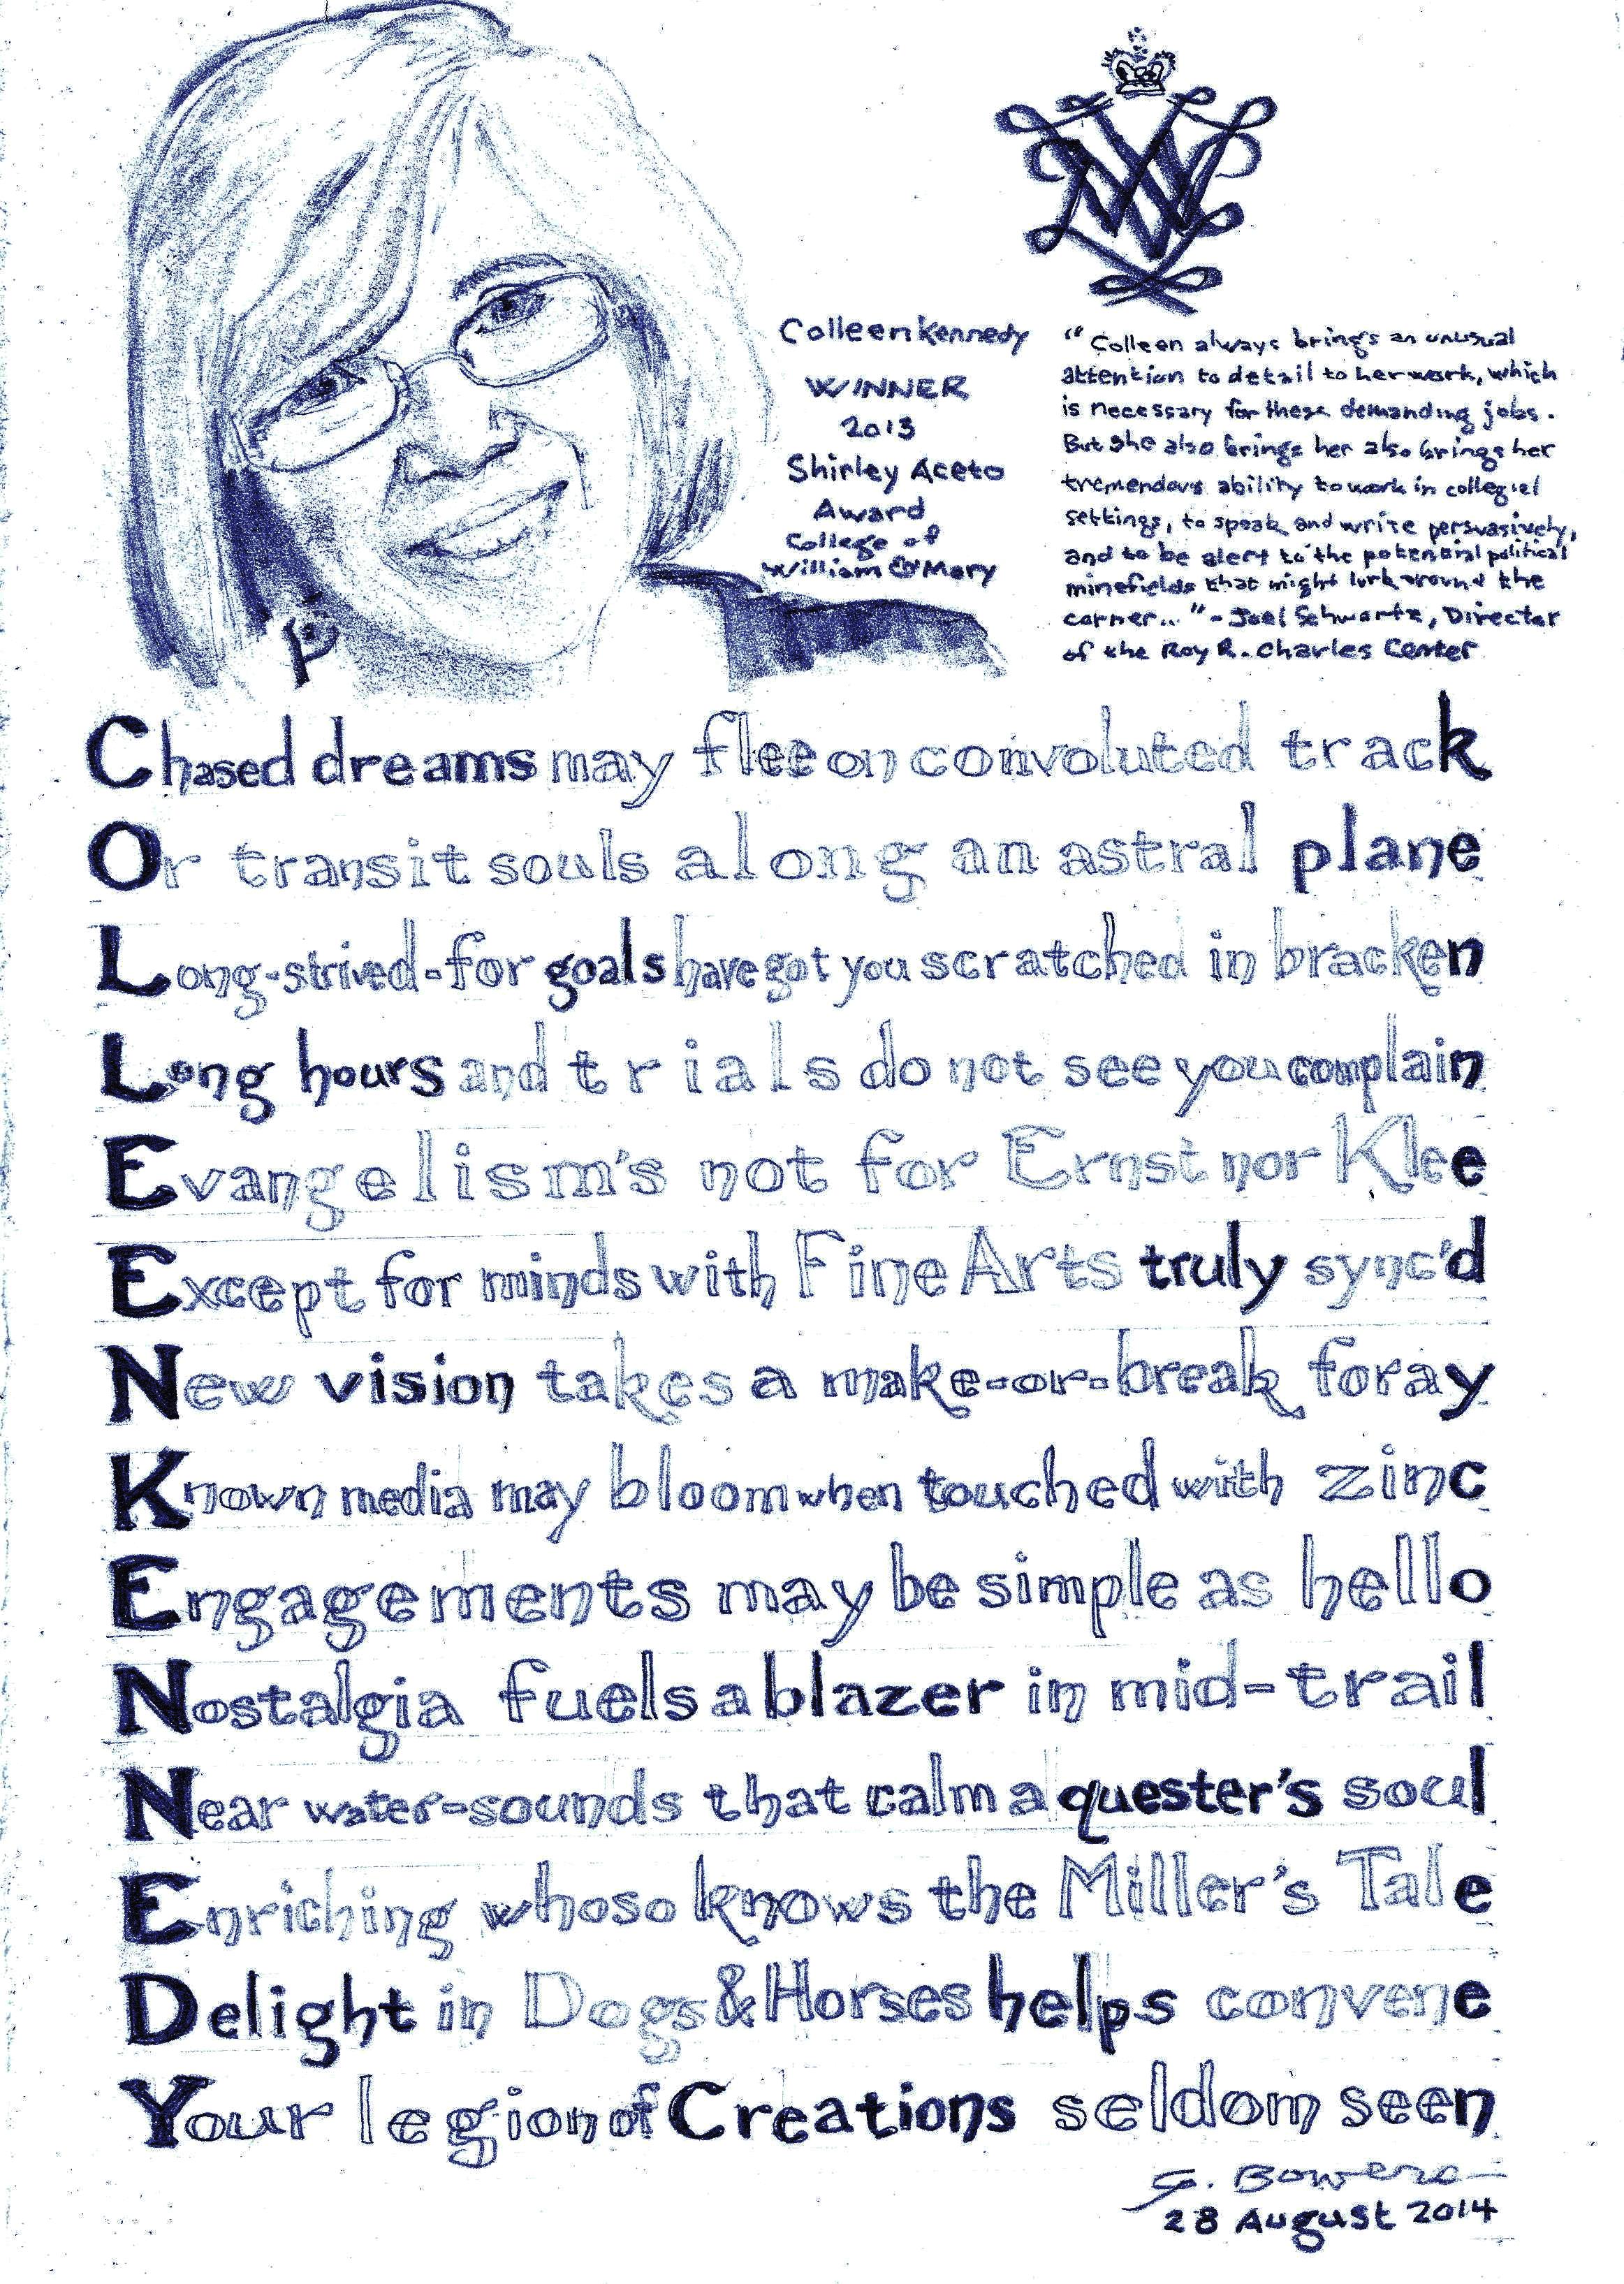 Colleen Kennedy
WINNER
2013
Shirley Aceto
Award
College of
William & Mary
"Colleen always brings an unusual
attention to detail to her work, which
is necessary for these demanding jobs.
But she also brings her also brings her
tremendous ability to work in collegiel
settings, to speak and write persuasively,
and to be alert to the potential political
minefields that might lurk around the
corner..." - Joel Schwartz, Director
of the Roy R. Charles Center
Chased dreams may flee on convoluted track
Or transit souls along an astral plane
Long-strived-for goals have got you scratched in bracken
Long hours and trials do not see you complain
Evangelism's not for Ernst nor Klee
Except for minds with Fine Arts truly sync'd
New vision takes a make-or-break foray
Known media may bloom when touched with zinc
Engagements may be simple as hello
Nostalgia fuels a blazer in mid-trail
Near water-sounds that calm a quester's soul
Enriching whoso knows the Miller's Tale
Delight in Dogs & Horses helps convene
Your legion of Creations seldom seen
G. Bowers
28 August 2014